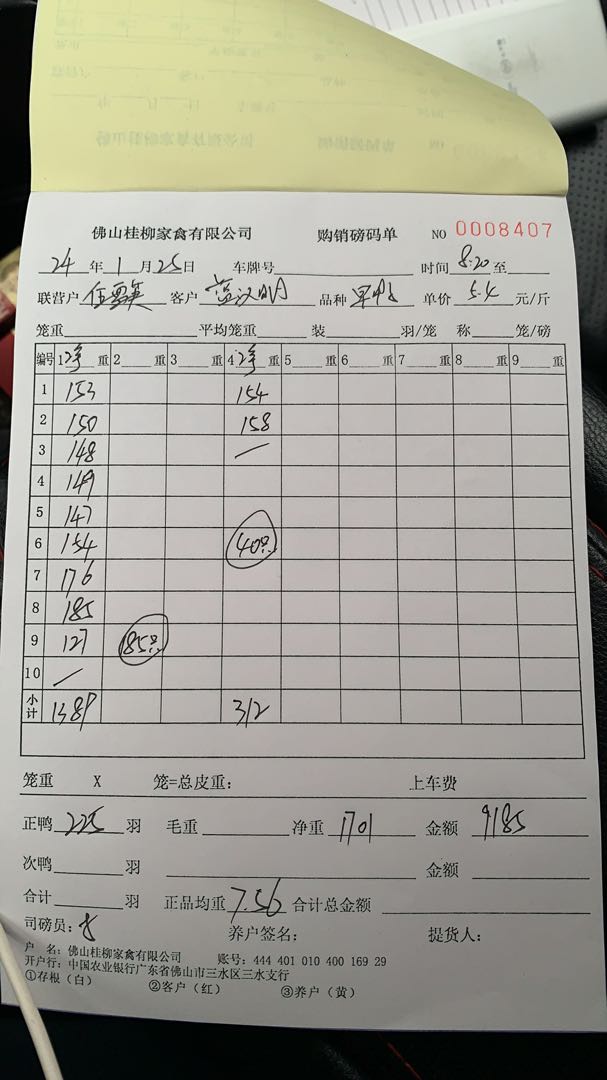 佛山桂柳家禽有限公司 购销磅码单 NO 0008407
24 年 1 月 25 日 车牌号 时间 8:20 至
联营户 客户 品种 单价 5.4 元/斤
笼重 平均笼重 装 羽/笼 称 笼/磅
编号 1 净 重 2 重 3 重 4 净 重 5 重 6 重 7 重 8 重 9 重
1 153 154
2 150 158
3 148
4 149
5 147
6 154 40只
7 176
8 185
9 127 185只
10
小计 1389 312
笼重 X 笼=总皮重: 上车费
正鸭 225 羽 毛重 净重 1701 金额 9185
次鸭 羽 金额
合计 羽 正品均重 7.56 合计总金额
司磅员: 养户签名: 提货人:
户 名: 佛山桂柳家禽有限公司 账号: 444 401 010 400 169 29
开户行: 中国农业银行广东省佛山市三水区三水支行
①存根(白) ②客户(红) ③养户(黄)